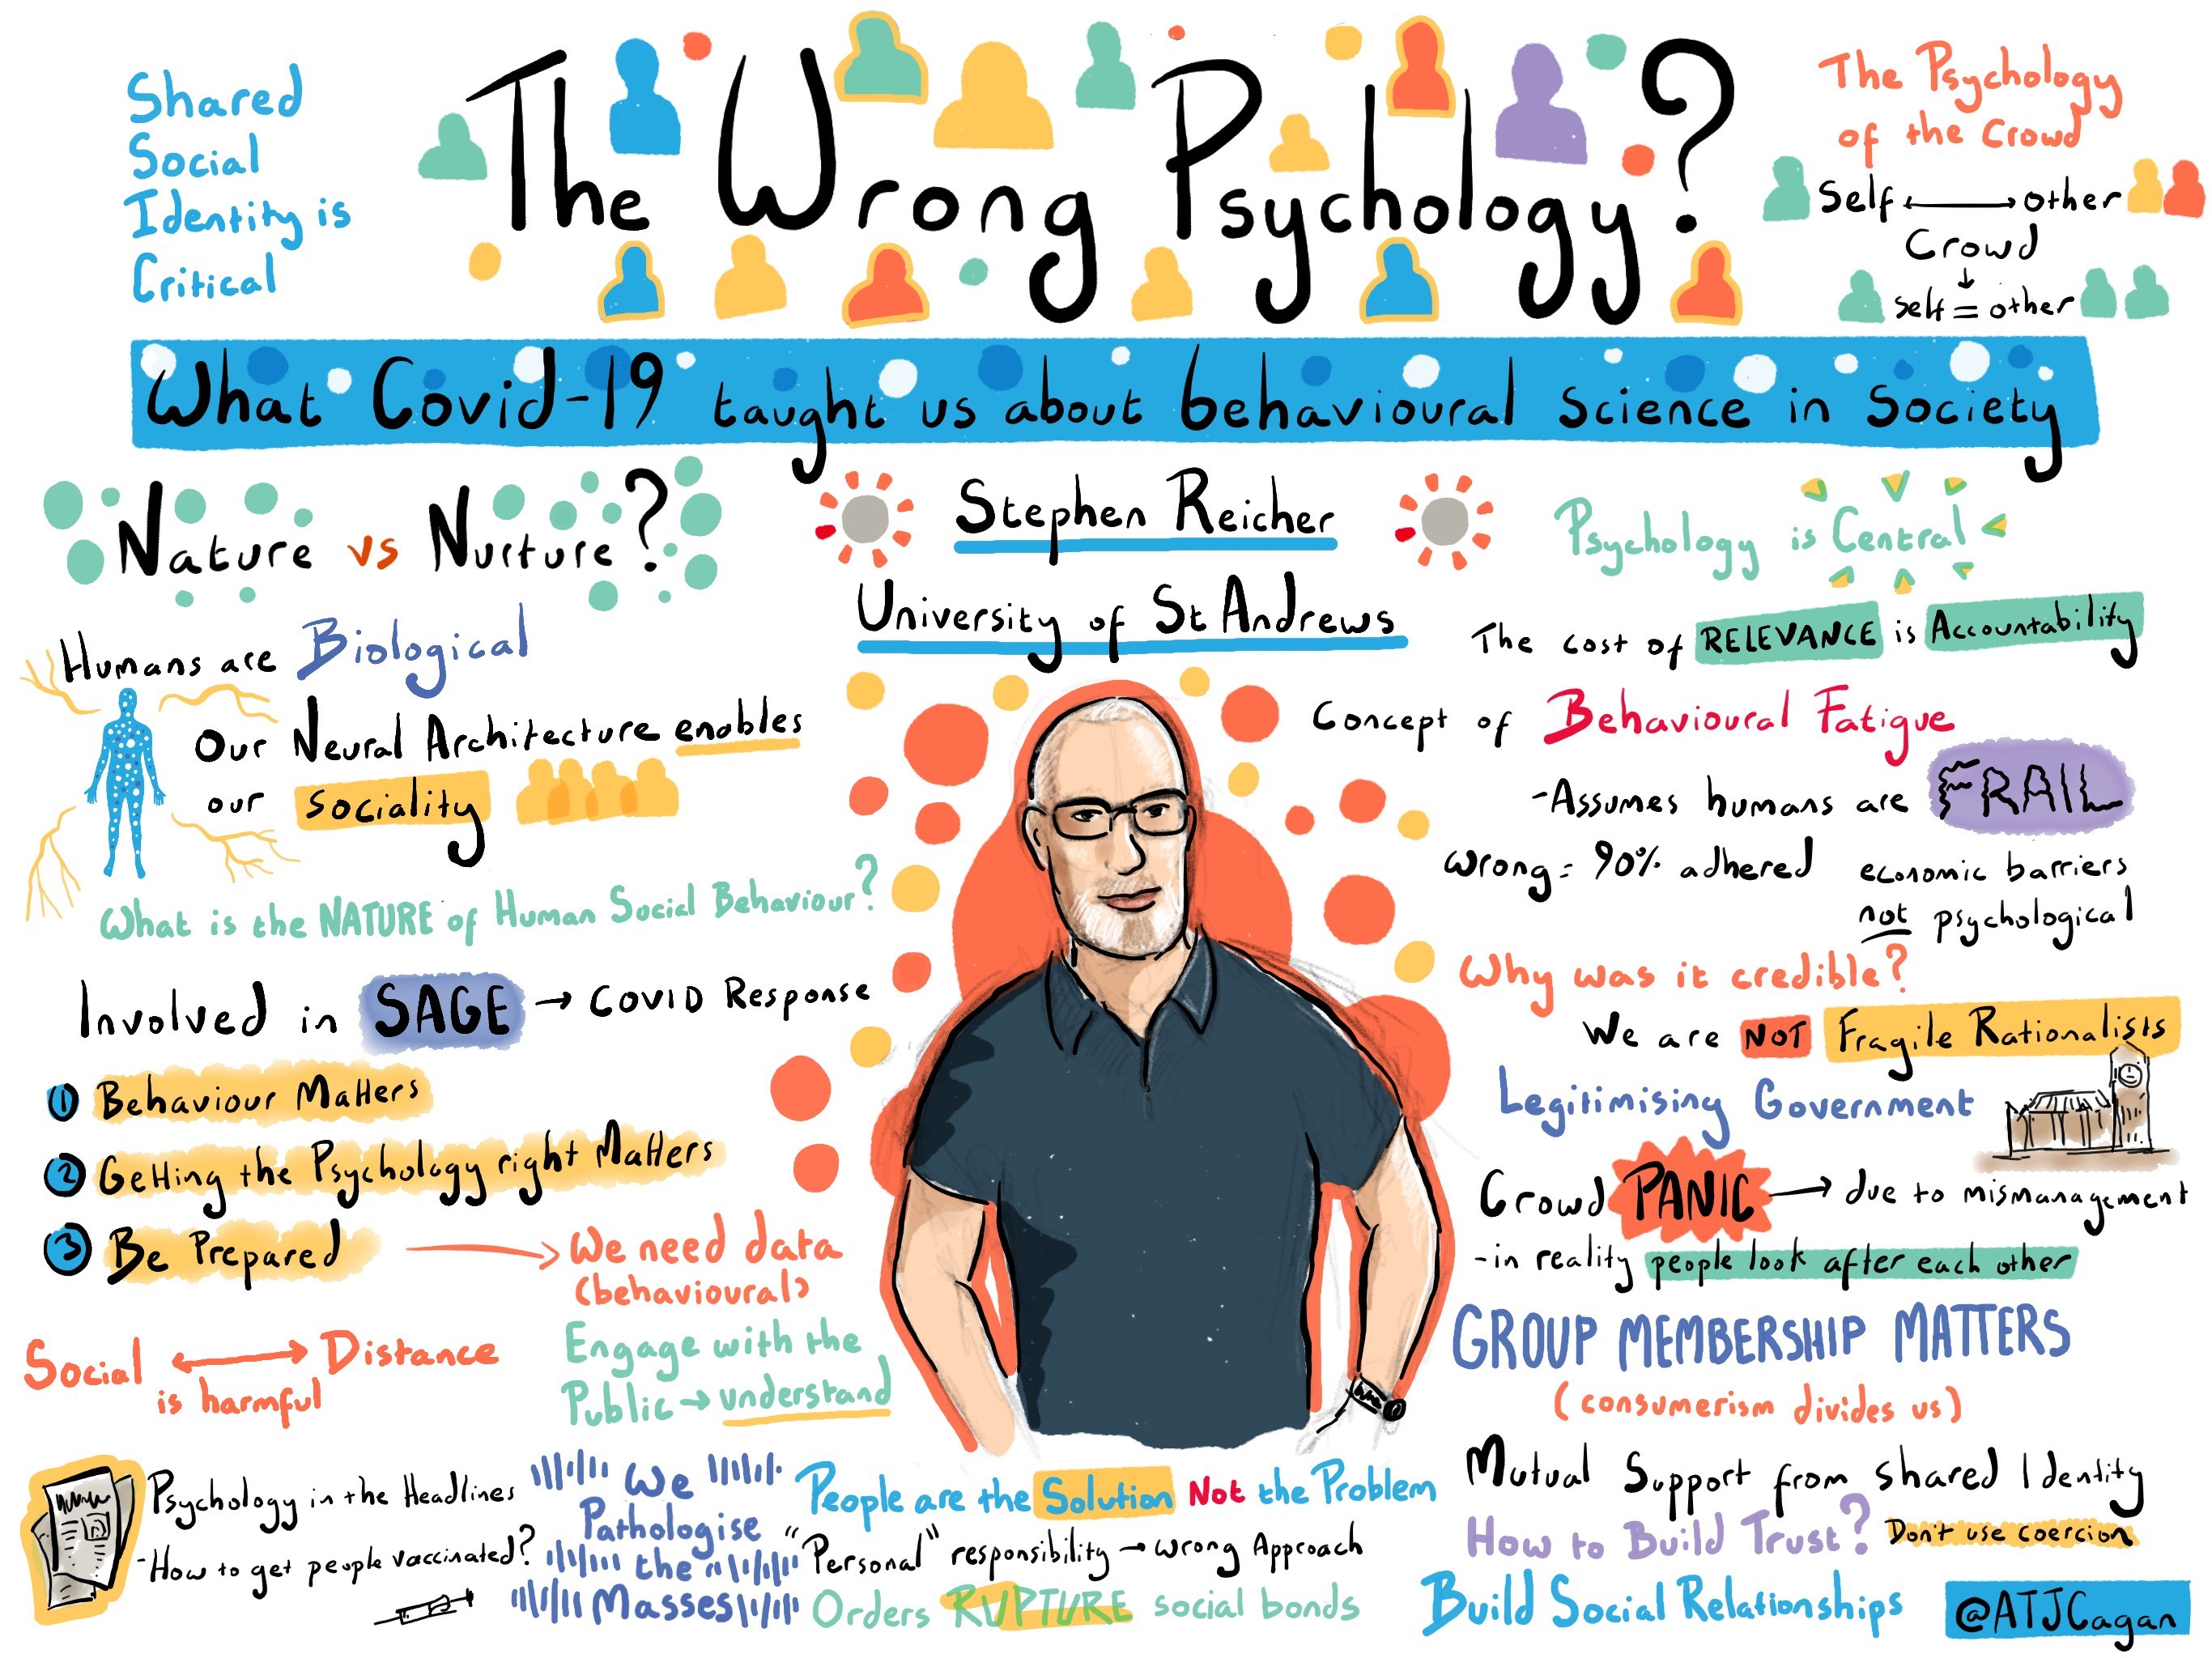 The Wrong Psychology?
Shared
Social
Identity is
Critical
The Psychology
of the Crowd
Self ↔ other
Crowd
↓
Self = other
What Covid-19 taught us about behavioural science in society
Nature vs Nurture?
Humans are Biological
Our Neural Architecture enables
our sociality
What is the NATURE of Human Social Behaviour?
Involved in SAGE → COVID Response
1 Behaviour Matters
2 Getting the Psychology right Matters
3 Be Prepared → We need data
(behavioural)
Engage with the
Public → understand
Social ↔ Distance
is harmful
Psychology in the Headlines
- How to get people vaccinated?
We
Pathologise
the
Masses
Stephen Reicher
University of St Andrews
People are the Solution Not the Problem
"Personal" responsibility → wrong Approach
Orders RUPTURE social bonds
Psychology is Central
The cost of RELEVANCE is Accountability
Concept of Behavioural Fatigue
- Assumes humans are FRAIL
Wrong = 90% adhered
economic barriers
not psychological
Why was it credible?
We are NOT Fragile Rationalists
Legitimising Government
Crowd PANIC → due to mismanagement
- in reality people look after each other
GROUP MEMBERSHIP MATTERS
(consumerism divides us)
Mutual Support from shared Identity
How to Build Trust? Don't use coercion
Build Social Relationships
@ATJCagan